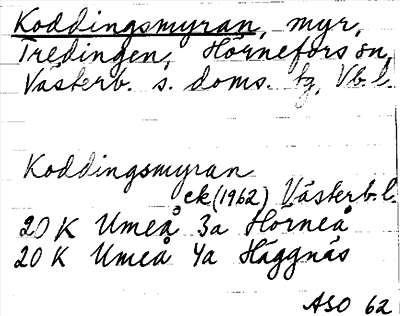 Koddingsmyran, myr,
Tredingen, Hörnefors sn,
Västerb. s. doms. tg, Vb.l.
Koddingsmyran
ek (1962) Västerb.l.
20 K Umeå 3a Hörneå
20 K Umeå 4a Häggnäs
ASO 62